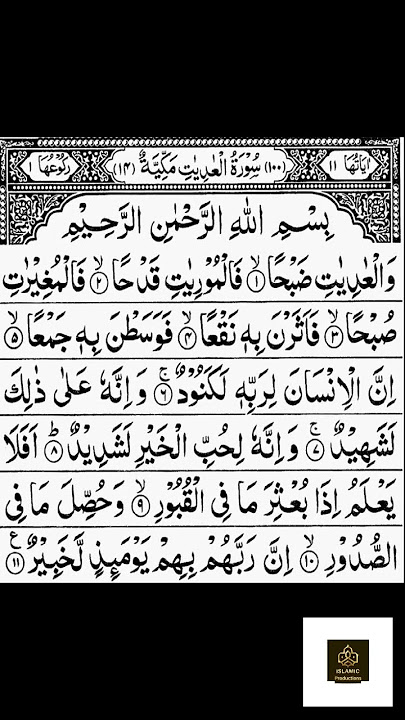 اٰيَاتُهَا ١١ (١٠٠) سُوْرَةُ الْعٰدِيٰتِ مَكِّيَّةٌ (١٤) رُكُوْعُهَا ١
بِسْمِ اللّٰهِ الرَّحْمٰنِ الرَّحِيْمِ
وَالْعٰدِيٰتِ ضَبْحًا ۙ﴿١﴾ فَالْمُوْرِيٰتِ قَدْحًا ۙ﴿٢﴾ فَالْمُغِيْرٰتِ
صُبْحًا ۙ﴿٣﴾ فَاَثَرْنَ بِهٖ نَقْعًا ۙ﴿٤﴾ فَوَسَطْنَ بِهٖ جَمْعًا ۙ﴿٥﴾
اِنَّ الْاِنْسَانَ لِرَبِّهٖ لَكَنُوْدٌ ۚ﴿٦﴾ وَاِنَّهٗ عَلٰى ذٰلِكَ
لَشَهِيْدٌ ۚ﴿٧﴾ وَاِنَّهٗ لِحُبِّ الْخَيْرِ لَشَدِيْدٌ ؕ﴿٨﴾ اَفَلَا
يَعْلَمُ اِذَا بُعْثِرَ مَا فِى الْقُبُوْرِ ۙ﴿٩﴾ وَحُصِّلَ مَا فِى
الصُّدُوْرِ ۙ﴿١٠﴾ اِنَّ رَبَّهُمْ بِهِمْ يَوْمَئِذٍ لَّخَبِيْرٌ ﴿١١﴾ ع
ISLAMIC
Productions